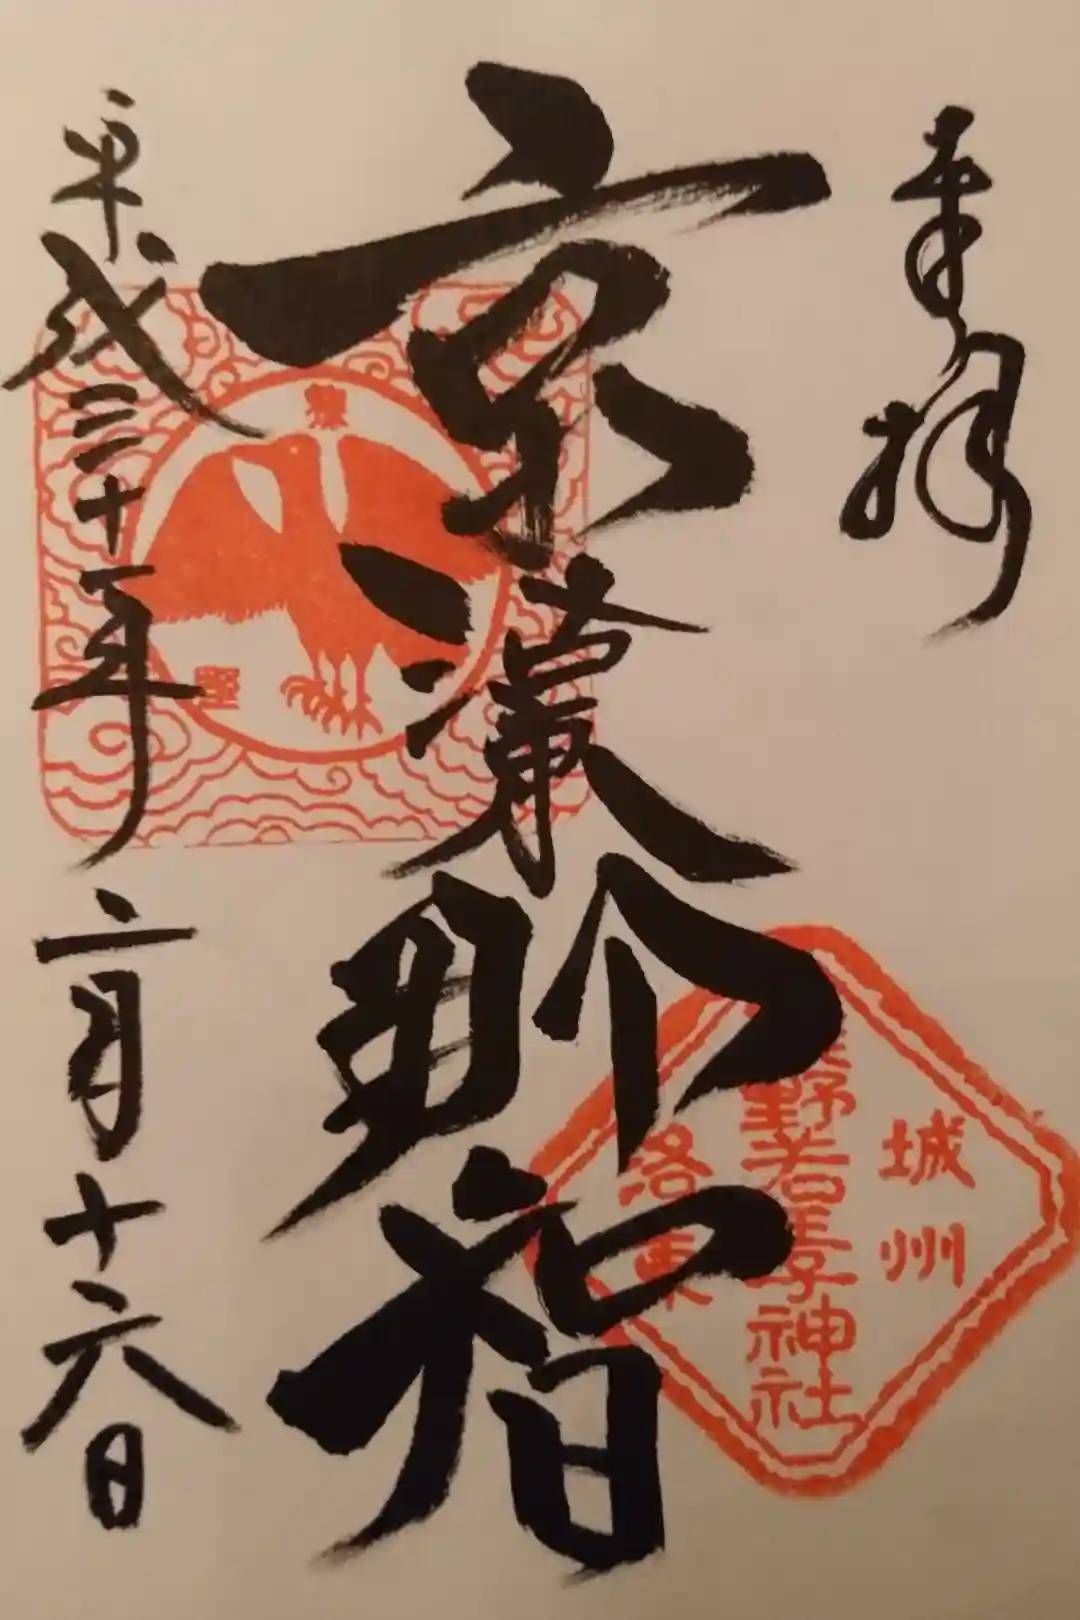 奉拝
京洛東那智
平成三十一年二月十六日
城州
熊野若王子神社
洛東